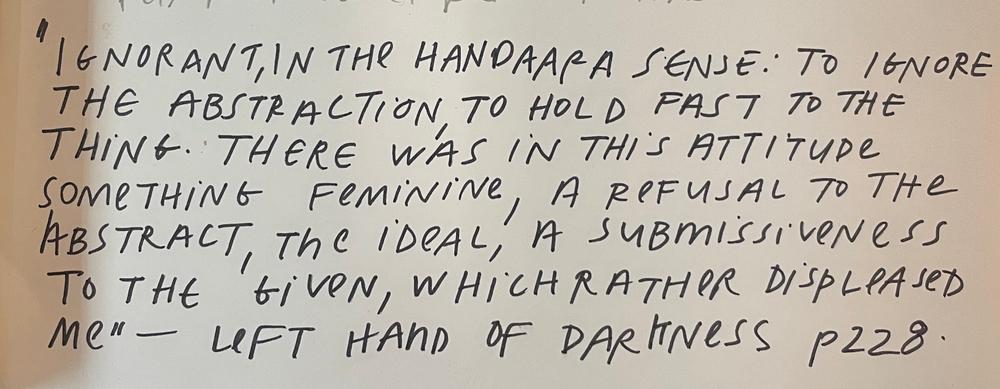 "IGNORANT, IN THE HANDAARA SENSE: TO IGNORE
THE ABSTRACTION, TO HOLD FAST TO THE
THING. THERE WAS IN THIS ATTITUDE
SOMETHING FEMININE, A REFUSAL TO THE
ABSTRACT, THE IDEAL, A SUBMISSIVENESS
TO THE GIVEN, WHICH RATHER DISPLEASED
ME" — LEFT HAND OF DARKNESS p228.